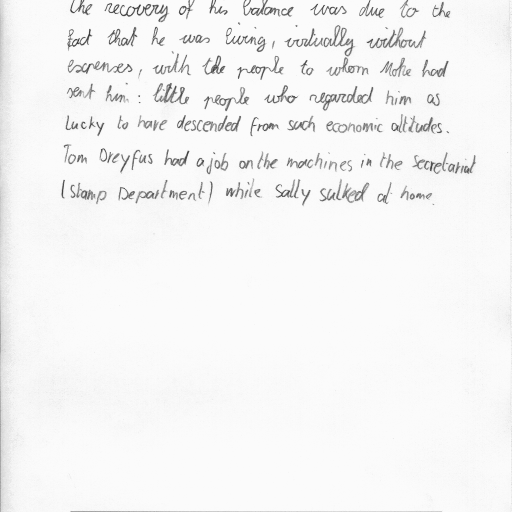 The recovery of his balance was due to the
fact that he was living, virtually without
expenses, with the people to whom Mokie had
sent him : little people who regarded him as
lucky to have descended from such economic altitudes.
Tom Dreyfus had a job on the machines in the Secretariat
(Stamp Department) while Sally sulked at home.